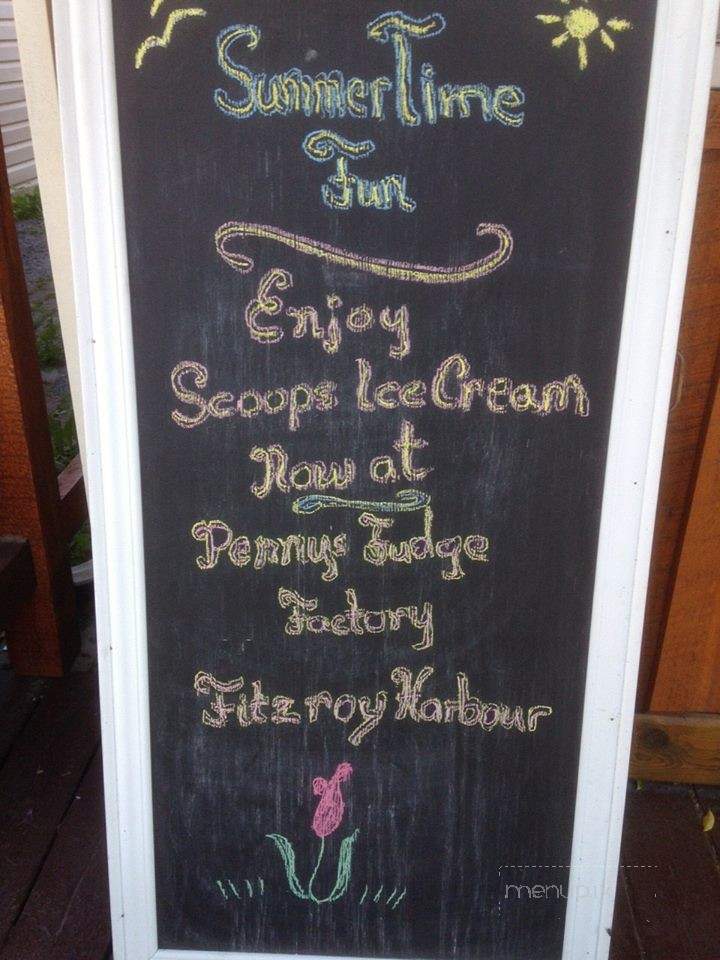 SummerTime
Fun
Enjoy
Scoops Ice Cream
Now at
Pennys Fudge
Factory
Fitzroy Harbour